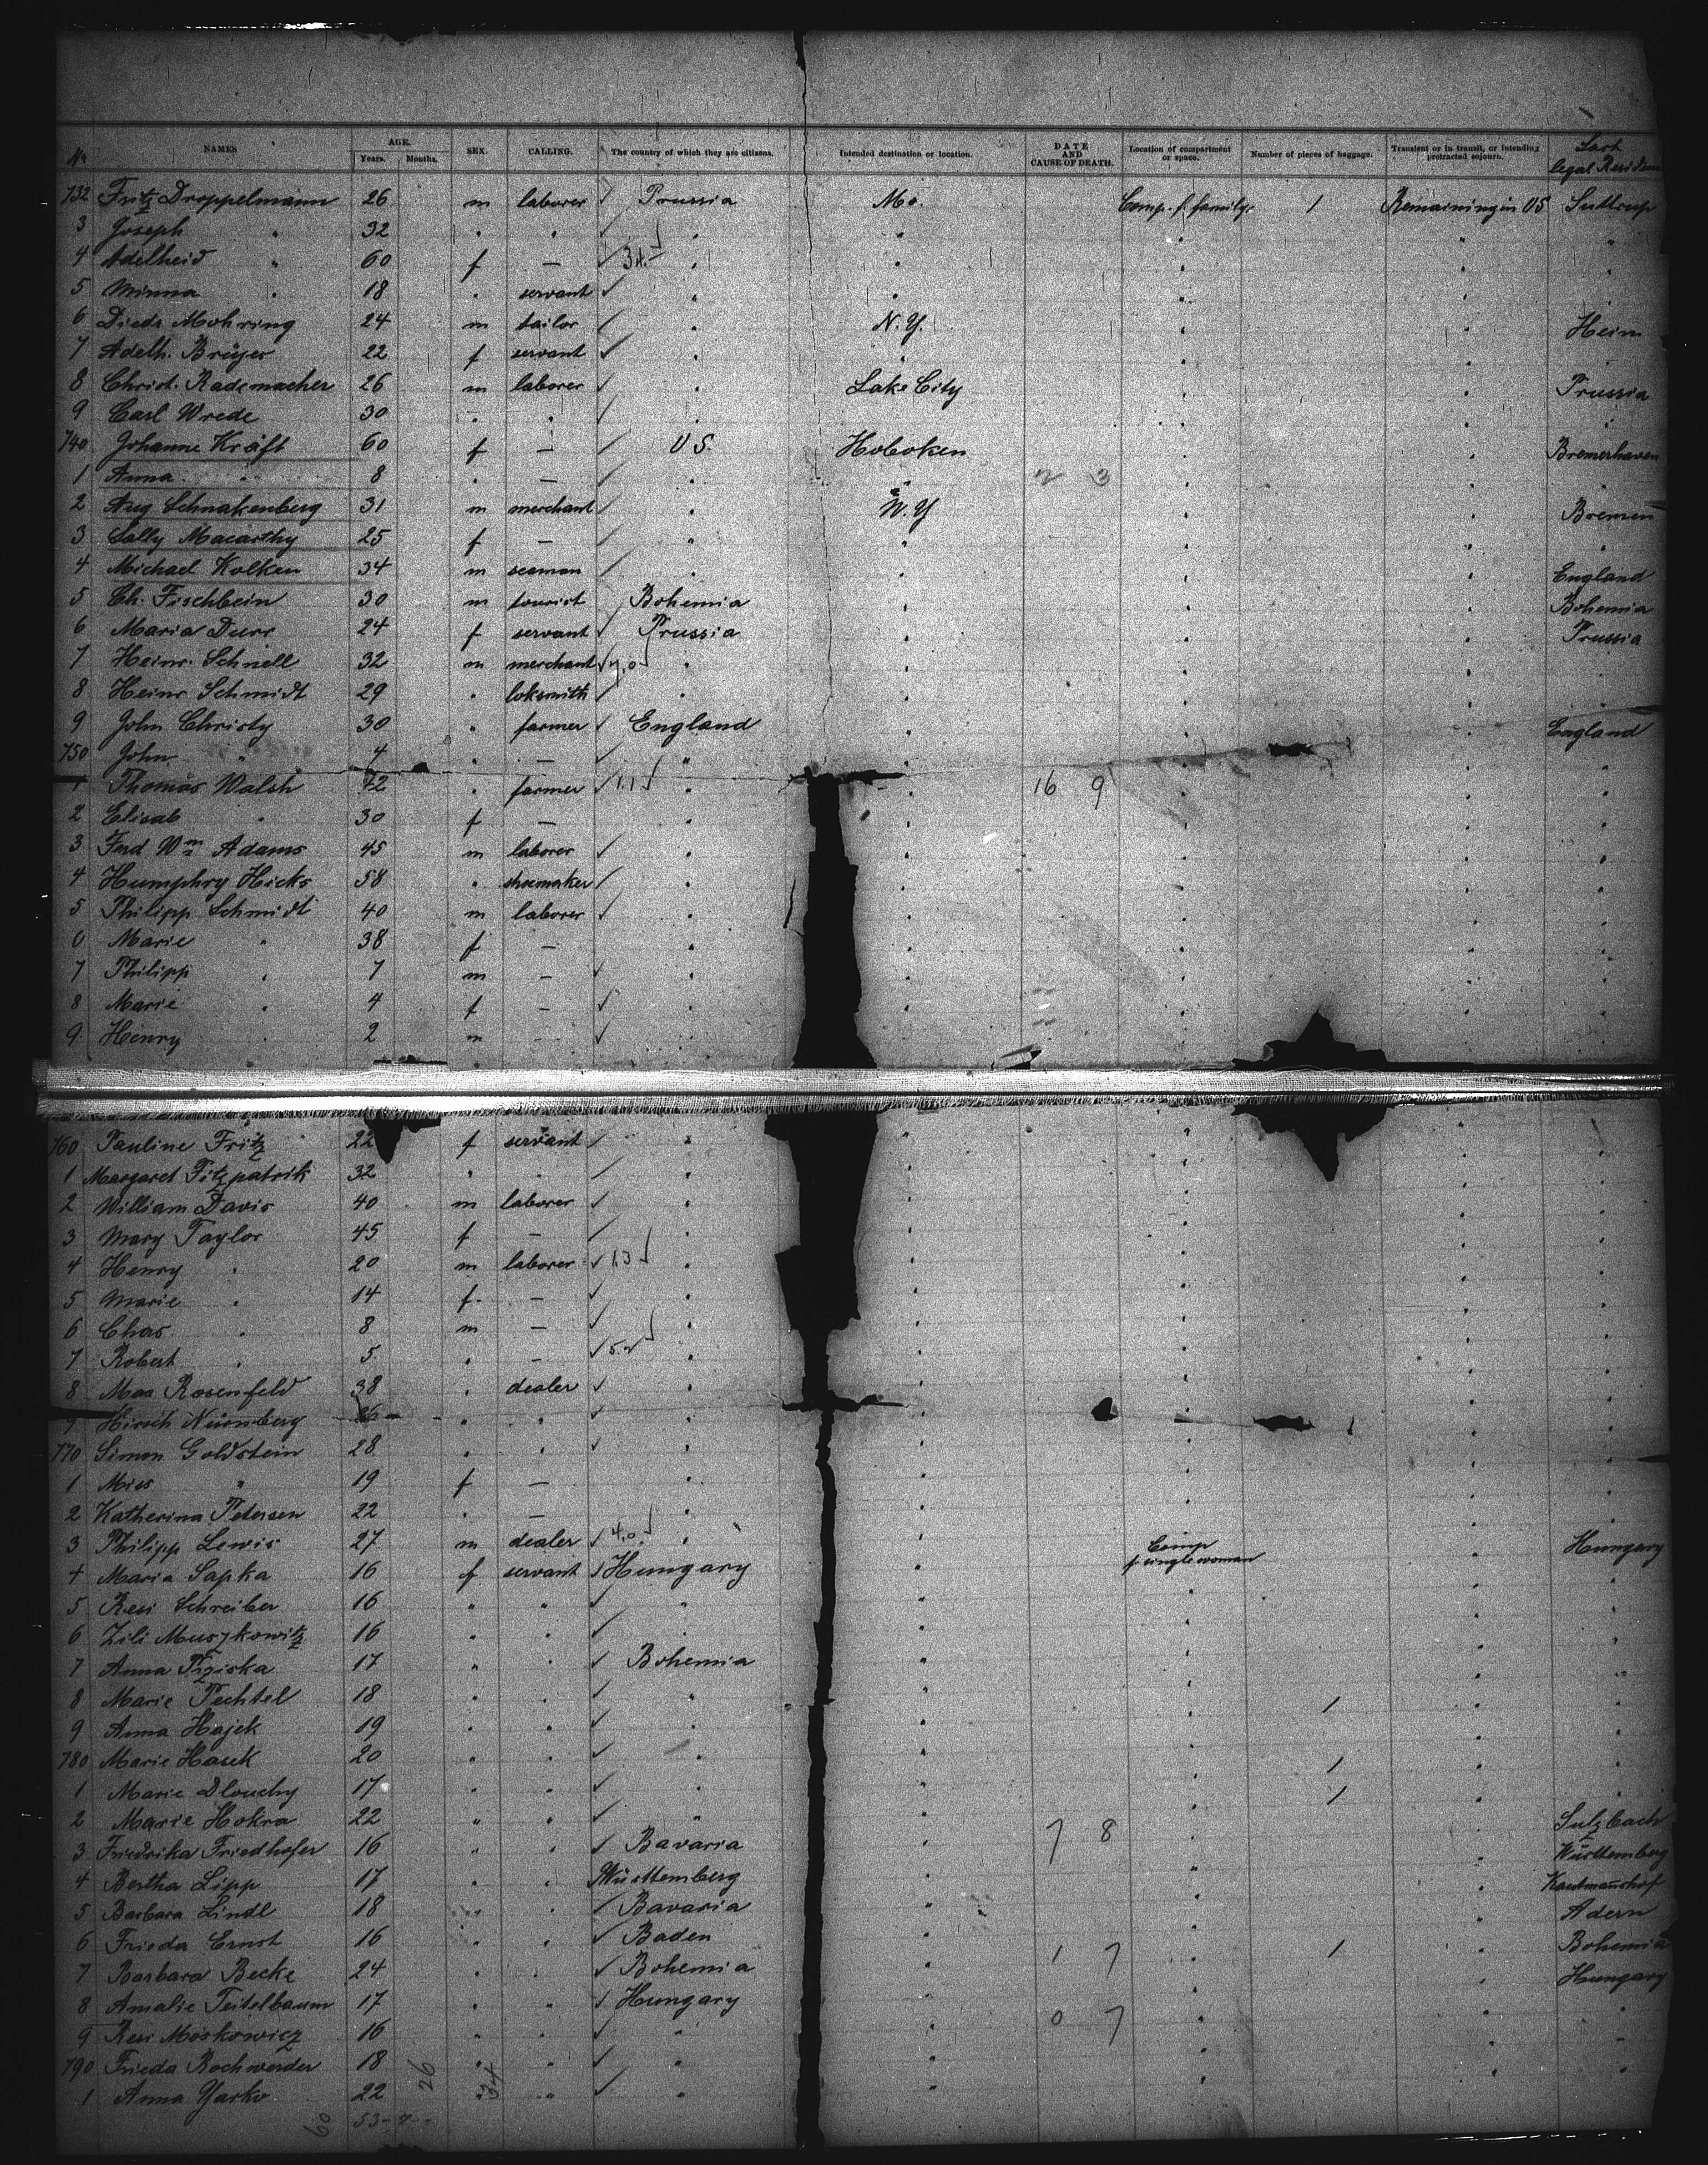 No NAMES AGE. Years. Months. SEX. CALLING. The country of which they are citizens. Intended destination or location. DATE AND CAUSE OF DEATH. Location of compartment or space. Number of pieces of baggage. Transient or in transit, or intending protracted sojourn. Last legal Residence
732 Fritz Droppelmann 26 m laborer ✓ Prussia Mo. Comp. f. family. 1 Remaining in US Suttrup
3 Joseph " 32 " " ✓ " " " " "
4 Adelheid " 60 f — ✓ 34. " " " " "
5 Minna " 18 " servant ✓ " " " " "
6 Diedr Mohring 24 m tailor ✓ " N.Y. " " Heim
7 Adelh. Brüyer 22 f servant ✓ " " " " "
8 Christ. Rademacher 26 m laborer ✓ " Lake City " " Prussia
9 Carl Wrede 30 " " ✓ " " " " "
740 Johanne Kräft 60 f — ✓ US. Hoboken " " Bremerhaven
1 Anna " 8 " — ✓ " " 2 3 " " "
2 Aug Schnakenberg 31 m merchant ✓ " N.Y " " Bremen
3 Sally Macarthy 25 f — ✓ " " " " "
4 Michael Kolken 34 m seaman ✓ " " " " England
5 Ch. Fischbein 30 m tourist ✓ Bohemia " " " Bohemia
6 Maria Durr 24 f servant ✓ Prussia " " " Prussia
7 Heinr. Schnell 32 m merchant ✓ " " " " "
8 Heinr Schmidt 29 " loksmith ✓ " " " " "
9 John Christy 30 " farmer ✓ England " " " England
750 John " 4 " — ✓ " " " " "
1 Thomas Walsh 42 " farmer ✓ 1.1 " " 16 9 " " "
2 Elisab " 30 f — " " " " "
3 Ferd Wm Adams 45 m laborer ✓ " " " " "
4 Humphry Hicks 58 " shoemaker ✓ " " " " "
5 Philipp Schmidt 40 m laborer ✓ " " " " "
6 Marie " 38 f — " " " " "
7 Philipp " 7 m — ✓ " " " " "
8 Marie " 4 f — ✓ " " " " "
9 Henry " 2 m — ✓ " " " "
760 Pauline Fritz 22 f servant ✓ " " " " "
1 Margaret Fitzpatrik 32 " " ✓ " " " " "
2 William Davis 40 m laborer ✓ " " " " "
3 Mary Taylor 45 f — ✓ " " " " "
4 Henry " 20 m laborer ✓ 13 " " " " "
5 Marie " 14 f — ✓ " " " " "
6 Chas " 8 m — ✓ " " " " "
7 Robert " 5 " — ✓ " " " " "
8 Max Rosenfeld 38 " dealer ✓ " " " " "
9 Hirsch Nürnberg 26 " " ✓ " " " " "
770 Simon Goldstein 28 " " ✓ " " " " "
1 Miss " 19 f — " " " " "
2 Katherina Petersen 22 " — " " " " "
3 Philipp Lewis 27 m dealer ✓ 4.0 " " " " "
4 Maria Sapka 16 f servant ✓ Hungary " Comp f. single woman " Hungary
5 Resi Schreiber 16 " " ✓ " " " " "
6 Zili Muszkowitz 16 " " ✓ " " " " "
7 Anna Pziska 17 " " ✓ Bohemia " " " "
8 Marie Pechtel 18 " " ✓ " " " 1 " "
9 Anna Hajek 19 " " ✓ " " " " "
780 Marie Hasek 20 " " ✓ " " " 1 " "
1 Marie Dlouchy 17 " " ✓ " " " 1 " "
2 Marie Hokra 22 " " ✓ " " " " "
3 Friedrika Friedhofer 16 " " ✓ Bavaria " 7 8 " " Sulzbach
4 Bertha Lipp 17 " " ✓ Württemberg " " " Württemberg
5 Barbara Lindl 18 " " ✓ Bavaria " " " Kautmannshof
6 Frieda Ernst 16 " " ✓ Baden " " " Adern
7 Barbara Becke 24 " " ✓ Bohemia " 1 7 " 1 " Bohemia
8 Amalie Teitelbaum 17 " " ✓ Hungary " " " Hungary
9 Resi Moskowicz 16 " " ✓ " " 0 7 " " "
790 Frieda Rochwerder 18 " " ✓ " " " " "
1 Anna Yarko 22 " " ✓ " " " " "
60 53-7- 26 34